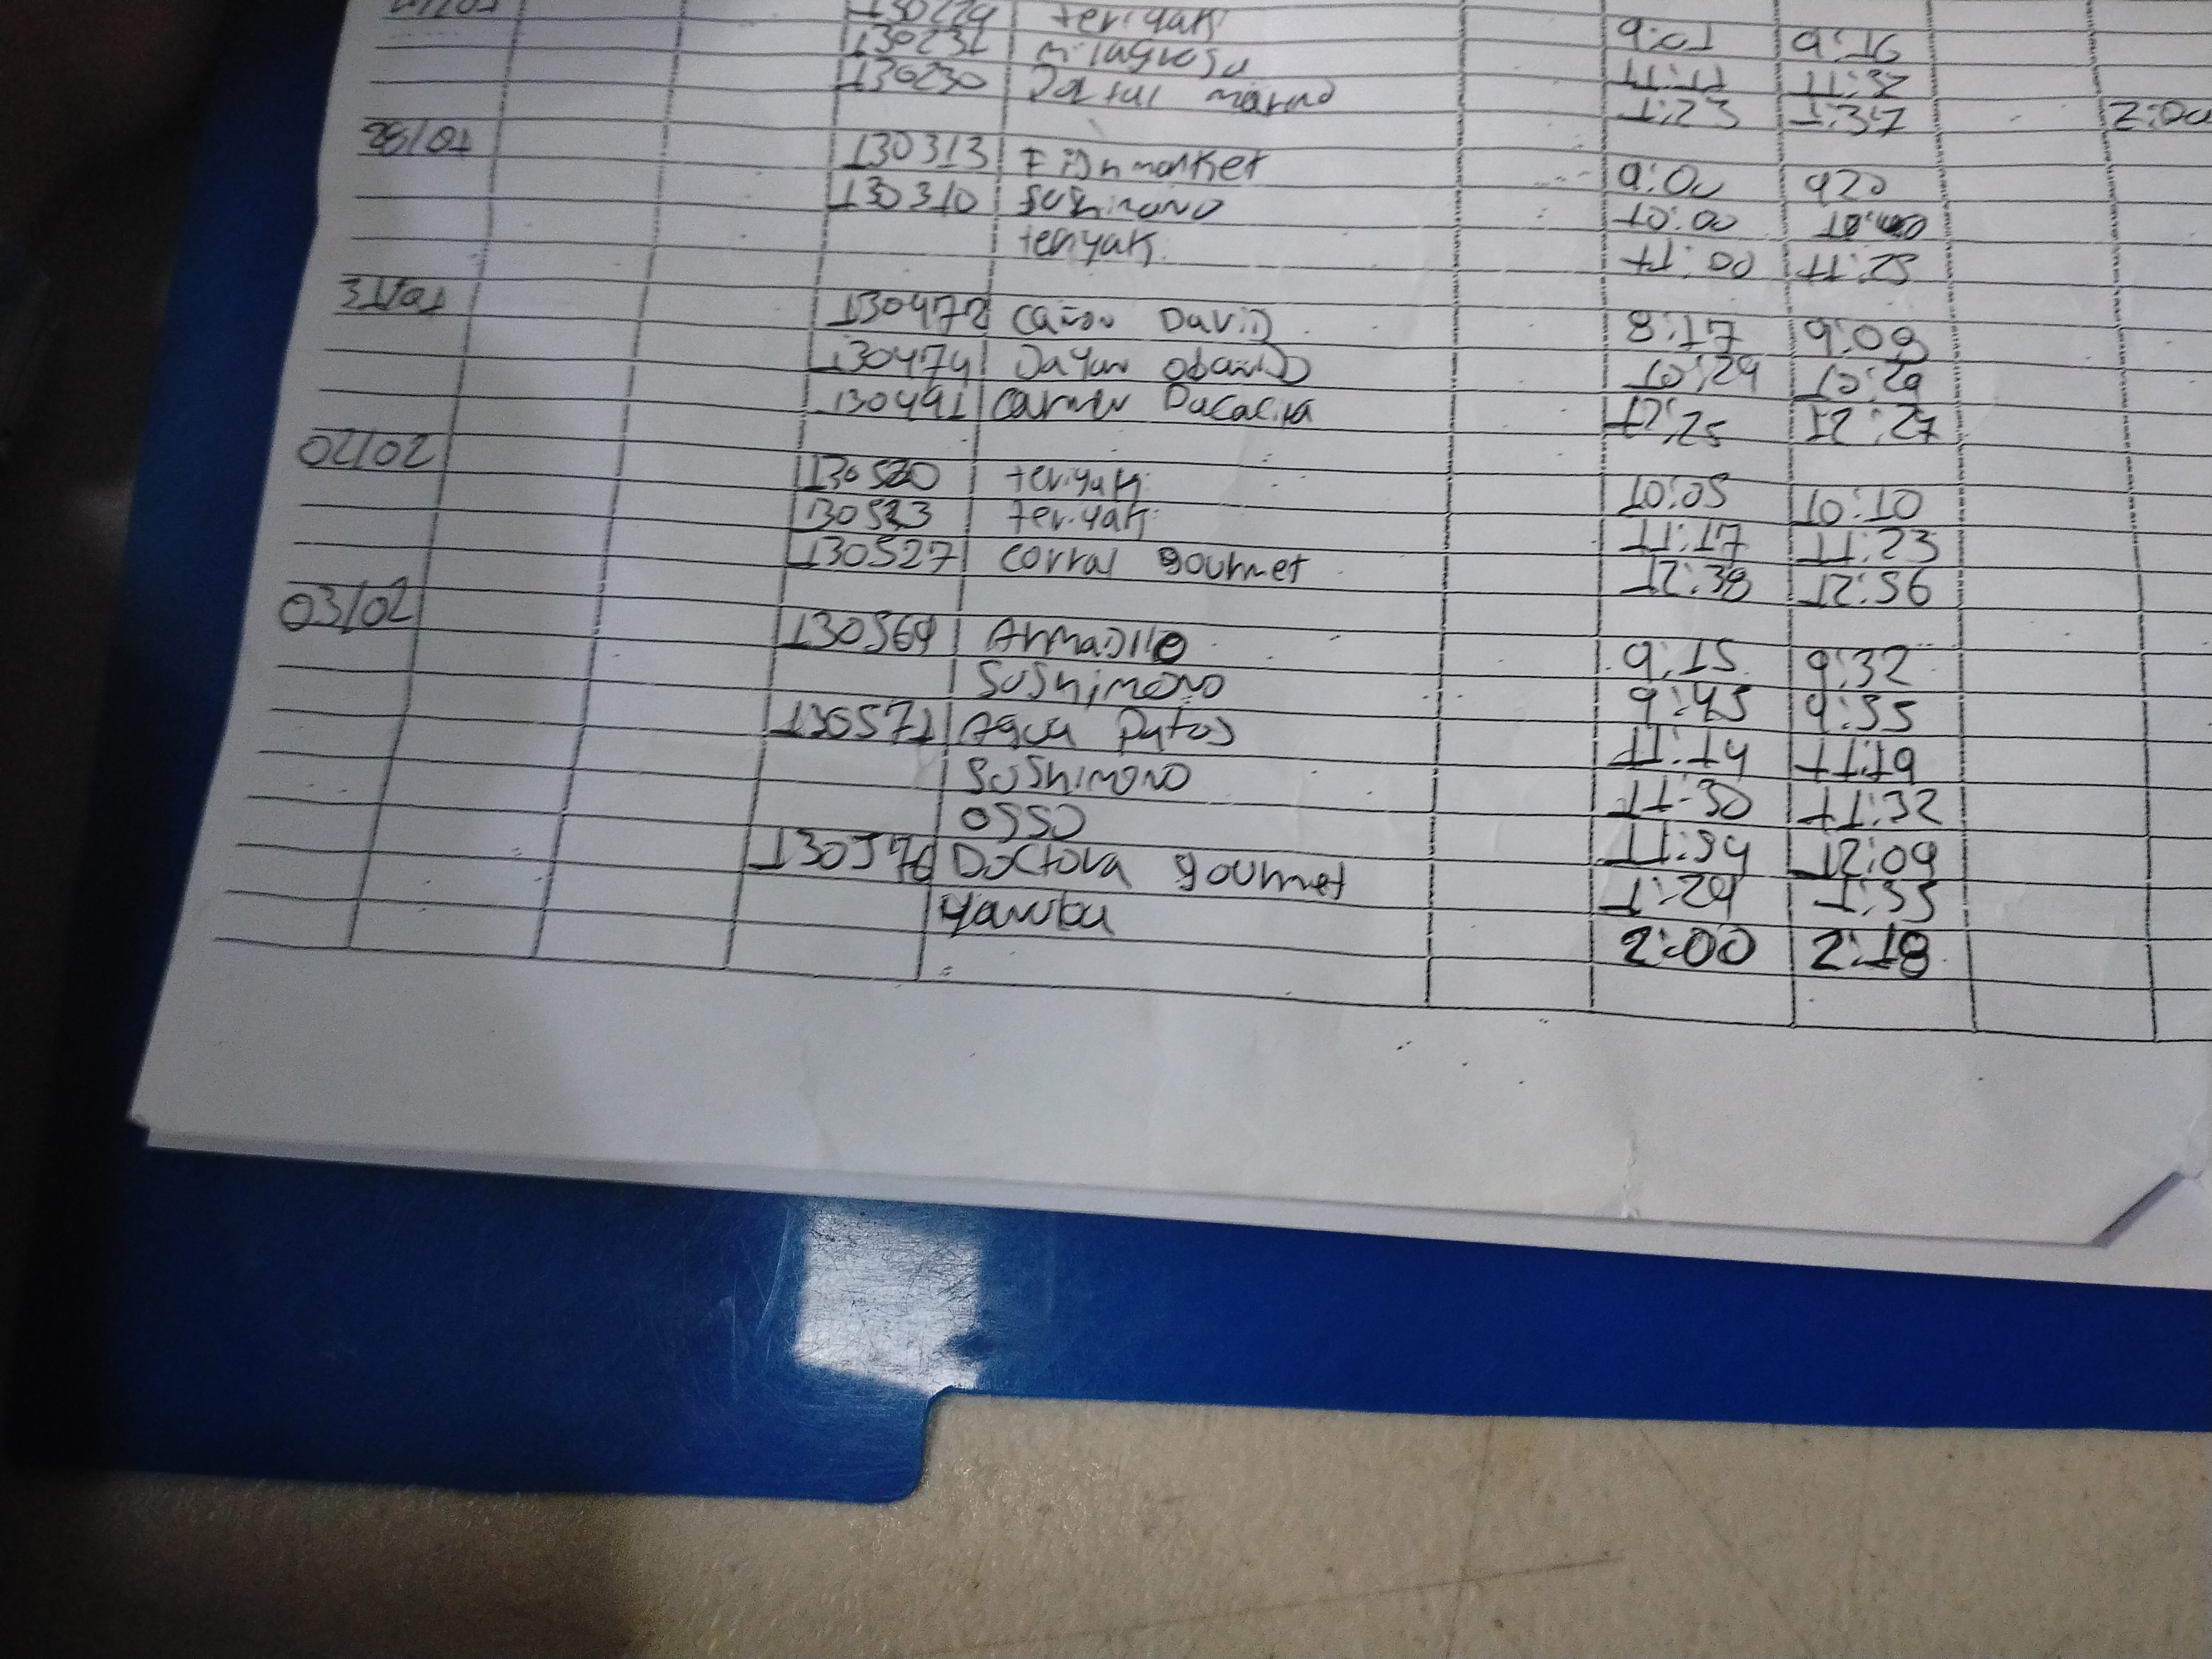 130229 teriyaki 9:01 9:16
130231 milagrosa 11:17 11:32
130230 marino 1:23 1:37 2:00
28/01 130313 Fishmarket 9:00 920
130310 Sushimono 10:00
teriyaki 11:00 11:25
31/01 130472 Cañon David 8:17 9:09
130474 Dayan obando 10:24 10:29
130491 Carmen 12:25 12:27
02/02 130520 teriyaki 10:05 10:10
130523 teriyaki 11:17 11:23
130527 corral gourmet 12:38 12:56
03/02 130569 Armadillo 9:15 9:32
Sushimono 9:45 9:55
130571 Agua Patos 11:14 11:19
Sushimono 11:30 11:32
OSSO 11:54 12:09
130576 Doctora gourmet 1:29 1:35
Yamba 2:00 2:18